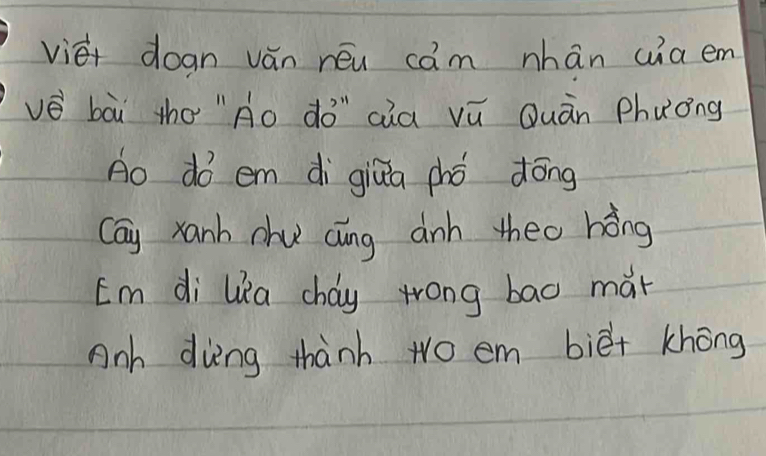 Viết đoạn văn nêu cảm nhận của em
về bài thơ "Áo đỏ" của Vũ Quần Phương
Áo đỏ em đi giữa phố đông
Cây xanh như cũng ánh theo hồng
Em đi lửa cháy trong bao mắt
Anh đứng thành tro em biết không